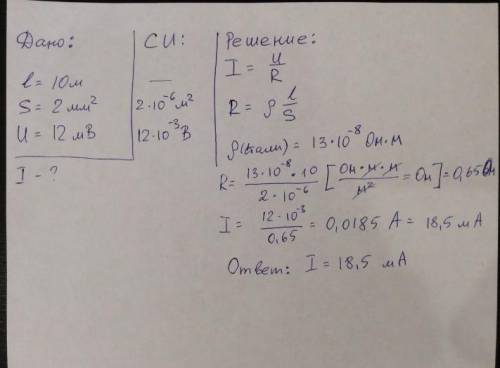 Дано:
l = 10м
S = 2 мм²
U = 12 мВ
I - ?
СИ:
—
2·10⁻⁶ м²
12·10⁻³ В
Решение:
I = U/R
R = ρ l/S
ρ(стали) = 13·10⁻⁸ Ом·м
R = 13·10⁻⁸·10 / 2·10⁻⁶ [Ом·м·м / м² = Ом] = 0,65 Ом
I = 12·10⁻³ / 0,65 = 0,0185 А = 18,5 мА
Ответ: I = 18,5 мА